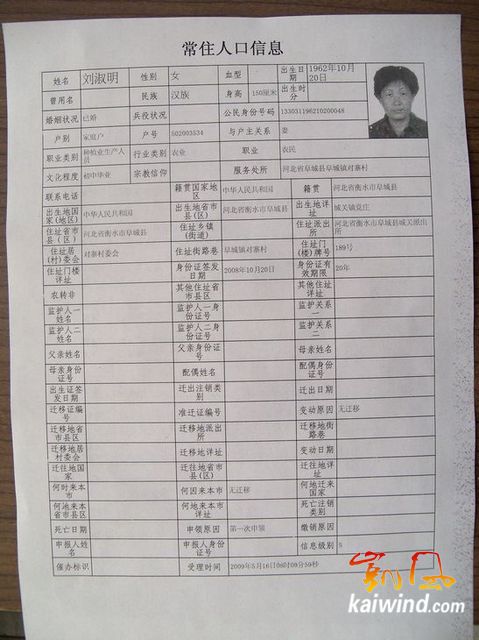 常住人口信息
姓名 刘淑明 性别 女 血型 出生日期 1962年10月20日
曾用名 民族 汉族 身高 150厘米 出生时分
婚姻状况 已婚 兵役状况 公民身份号码 133031196210200048
户别 家庭户 户号 502003534 与户主关系 妻
职业类别 种植业生产人员 行业类别 农业 职业 农民
文化程度 初中毕业 宗教信仰 服务处所 河北省阜城县阜城镇对寨村
联系电话 籍贯国家地区 中华人民共和国 籍贯 河北省衡水市阜城县
出生地国家(地区) 中华人民共和国 出生地省市县(区) 河北省衡水市阜城县 出生地详址 城关镇党庄
住址省市县(区) 河北省衡水市阜城县 住址乡镇(街道) 住址派出所 河北省衡水市阜城县城关派出所
住址居(村)委会 对寨村委会 住址街路巷 阜城镇对寨村 住址门(楼)牌号 189号
住址门楼详址 身份证签发日期 2008年10月20日 身份证有效期限 20年
农转非 其他住址省市县区 其他住址详址
监护人一姓名 监护人一身份证号 监护关系一
监护人二姓名 监护人二身份证号 监护关系二
父亲姓名 父亲身份证号 母亲姓名
母亲身份证号 配偶姓名 配偶身份证号
出生证签发日期 迁出注销类别 迁出日期
迁移证编号 准迁证编号 变动原因 无迁移
迁移地省市县区 迁移地派出所 迁移地街路巷
迁移地居村委会 迁移地详址 变动日期
迁往地国家 迁往地省市县(区) 迁往地详址
何时来本市 何因来本市 无迁移 何地迁来国家
何地来本省市县区 何地来本市详址 死亡注销类别
死亡日期 申领原因 第一次申领 缴销原因
申报人姓名 申报人身份证号 信息级别 S
催办标识 受理时间 2009年5月16日08时09分59秒
kaiwind.com